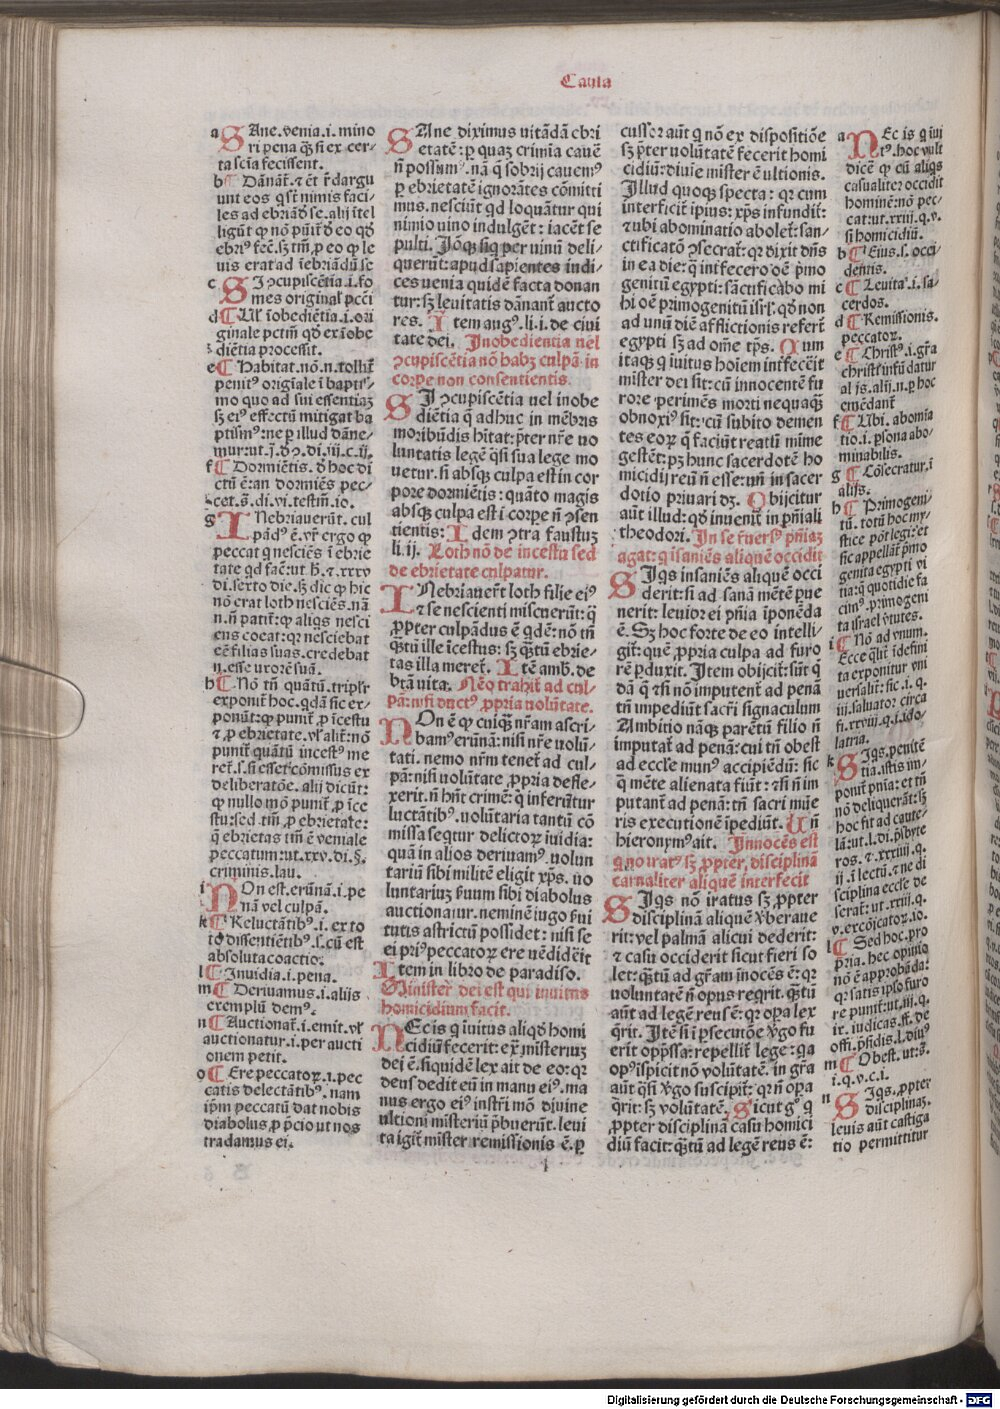 Causa
a SAne.venia.i.mino
ri pena qȝ si ex cer-
ta scīa fecissent.
b ¶ Dānāt̄.⁊ ēt r̄dargu
unt eos qͥ st̄ nimis faci-
les ad ebriādū se. alij ītel
ligūt ꝙ nō pūit̄ ꝺ eo qꝺ
ebriꝰ fec̄.sȝ tm̄ ꝓ eo ꝙ le
uis erat ad īebriādū se
c SI ↄcupiscētia.i.fo
mes original̓ pcc̄i
d ¶ Uel̓ īobediētia.i.ori
ginale pctm̄ qꝺ ex īobe
diētia processit.
e ¶ Habitat.nō.n.tollit̄
penitꝰ origīale ī baptiſ-
mo quo ad sui essentiaȝ
sȝ eiꝰ effectū mitigat ba
ptismꝰ:ne ꝑ illud dāne-
f ¶ Dormiētis. ꝺ hoc di
ctū ē:an dormiēs pec-
g INebriauerūt. cul
pādꝰ ē.vr̄ ergo ꝙ
peccat qͥ nesciēs ī ebrie
di.sexto die.sȝ dic̄ ꝙ hic
nō erat loth nesciēs.nā
n.n̄ patit̄:ꝙ aliqͥs nesci
ens coeat:qꝛ nesciebat
eē filias suas.credebat
.n.esse uxorē suā.
h ¶ Nō tm̄ quātū.triplr̄
exponit̄ hoc.qͥdā sic ex-
ponūt:ꝙ punit̄ ꝓ īcestu
⁊ ꝓ ebrietate.vl̓ alit̄:nō
punit̄ quātū incestꝰ me
ret̄.s.si esset cōmissus ex
deliberatōe. alij dicūt:
ꝙ nullo mō punit̄ ꝓ īce
stu:sed tm̄ ꝓ ebrietate:
qͥ ebrietas tm̄ ē veniale
peccatum:ut.xxv.di.§.
criminis.lau.
i NOn est.erūnā.i.pe
nā vel culpā.
k ¶ Reluctātibꝰ.i.ex to
to dissentiētibꝰ.s.cū est
absoluta coactio.
l ¶ Inuidia.i.pena.
m ¶ Deriuamus.i.aliis
exemplū demꝰ.
n ¶ Auctionat̄.i.emit.vl̓
auctionatur.i.per aucti
onem petit.
o ¶ Ere peccatoꝝ.i.pec
catis delectātibꝰ. nam
ip̄m peccatū dat nobis
diabolus ꝓ p̄cio ut nos
tradamus ei.
SAne diximus uitādā ebri
etatē: ꝑ quaȝ crimīa cauē
n̄ possumꝰ.nā qͥ sobrij cauemꝰ
ꝑ ebrietatē ignorātes cōmitti
mus.nesciūt qd loquātur qui
nimio uino indulgēt: iacēt se
pulti. Itaqȝ siqͥ per uinū deli
querūt:apud sapientes iudi-
ces uenia quidē facta donan
tur:sȝ leuitatis dānant̄ aucto
res. Item augꝰ.li.i.de ciui
tate dei. Inobedientia uel
ↄcupiscētia nō habȝ culpā in
corpe non consentientis.
SI ↄcupiscētia uel inobe
diētia qͤ adhuc in mēbris
moribūdis hītat:pter nr̄e uo
luntatis legē qͣsi sua lege mo
uetur.si absqȝ culpa est in cor
pore dormiētis: quāto magis
absqȝ culpa est ī corpe n̄ ↄsen
tientis: Idem ↄtra faustuȝ
li.ij. Loth nō de incestu sed
de ebrietate culpatur.
INebriauert̄ loth filie eiꝰ
⁊ se nescienti miscuerūt: qͣ
ꝓpter culpādus ē qͥdē: nō tn̄
qͣtū ille īcestus: sȝ qͣtū ebrie-
tas illa meret̄. Itē amb.de
btā uita. Neqȝ trahit̄ ad cul-
pā:nisi ductꝰ ꝓpria uolūtate.
NOn ē ꝙ cuiqȝ nr̄am ascri
bamꝰ erūnā: nisi nr̄e uolū-
tati.nemo nr̄m tenet̄ ad cul-
pā: nisi uolūtate ꝓpria defle-
xerit.n̄ hn̄t crimē: qͤ inferūtur
luctātibꝰ.uolūtaria tantū cō
missa seqtur delictoꝝ iuidia:
quā in alios deriuamꝰ.uolun
tariū sibi militē eligit xp̄s. uo
luntariuȝ ẜuum sibi diabolus
auctionatur.neminē iugo ẜui
tutis astrictū possidet: nisi se
ei priꝰ peccatoꝝ ere uēdiderit
Item in libro de paradiso.
Minister dei est qui inuitus
homicidium facit.
NEc is qͥ iuitus aliqͦꝺ homi
cidiū fecerit: exͣ mīsteriuȝ
dei ē.siquidē lex ait de eo: qꝛ
deus dedit eū in manu eiꝰ.ma
nus ergo eiꝰ instr̄i mō diuine
ultioni mīsteriū p̄buerūt.leui
ta igit̄ mīster remissionis ē.ꝑ
cussor aūt qͥ nō ex dispositiōe
sȝ p̄ter uolūtatē fecerit homi
cidiū: diuīe mister ē ultionis.
Illud quoqȝ specta: qꝛ cum
interficit̄ ipius: xp̄s infundit̄:
⁊ ubi abominatio abolet̄: san-
ctificatō ↄsecrat̄: qꝛ dixit dn̄s
in ea die: qͣ int̄fecero oē p̄mo
genitū egypti: sāctificabo mi
hi oē primogenitū isrl̓.qꝺ non
ad unū diē afflictionis refert̄
egypti sȝ ad om̄e tp̄s. Cum
itaqȝ qͥ iuitus hoīem int̄fecēit
mīster dei sit: cū innocentē fu
rore perimēs morti nequaqȝ
obnoxiꝰ sit: cū subito demen
tes eoꝝ qͥ faciūt reatū mīme
gestēt: pȝ hunc sacerdotē ho
micidij reū n̄ esse: un̄ in sacer
dotio priuari dȝ. Obijcitur
aūt illud: qꝺ inuenit̄ in pn̄iali
theodori. In se fuersꝰ pn̄iaȝ
agat: qͥ īsaniēs aliquē occidit
SIqͥs insaniēs aliquē occi
derit: si ad sanā mētē pue
nerit: leuior ei pn̄ia īponēda
ē. Sȝ hoc forte de eo intelli-
git̄: quē ꝓpria culpa ad furo
rē ꝑduxit. Item obijcit̄: sūt qͤ
dā qͤ ⁊si nō imputent̄ ad penā
tn̄ impediūt sacri signaculum
Ambitio nāqȝ parētū filio n̄
imputat̄ ad penā: cui tn̄ obest
ad eccl̓ie munꝰ accipiēdū: sic
qͤ mēte alienata fiūt: ⁊si n̄ im
putant̄ ad penā: tn̄ sacri mūe
ris executionē īpediūt. Un̄
hieronymꝰ ait. Innocēs est
qͥ no iratꝰ sȝ ꝓpter disciplinā
carnaliter aliquē interfecit
SIqͥs nō iratus sȝ ꝓpter
disciplinā aliquē v̄beraue
rit: vel palmā alicui dederit:
⁊ casu occiderit sicut fieri so
let: qͣtū ad gr̄am īnocēs ē: qꝛ
uoluntatē n̄ opus reqͥrit. qͣtū
aūt ad legē reus ē: qꝛ opa lex
qͥrit. Itē si ī psecutōe v̄go fu
erit opp̄ssa: repellit̄ lege: qͣ
opꝰ īspicit nō volūtatē. in gr̄a
aūt qͣsi v̄go suscipit̄: qꝛ n̄ oꝑa
qͥrit: sȝ volūtatē. Sicut gͦ qͥ
ꝓpter disciplinā casu homici
diū facit: qͣtū ad legē reus ē:
a NEc is qͥ iui
tꝰ. hoc vult
dicē ꝙ cū aliqͥs
casualiter occidit
hominē: nō pec-
cat: ut.xxiij.q.v.
si homicidiū.
b ¶ Eius.s. occi
dentis.
c ¶ Leuita.i.sa-
cerdos.
d ¶ Remissionis.
peccatoꝝ.
e ¶ Christꝰ.i.gr̄a
christi īfūdatur
al̓ is.alij.n.ꝑ hoc
emēdant̄
f ¶ Ubi. abomia
tio.i. psona abo-
minabilis.
g ¶ Cōsecratur.ī
alijs.
h ¶ Primogeni-
tū. totū hoc my-
stice pōt legi: et
sic appellāt̄ p̄mo
genita egypti vi
tia: qͤ quotidie fa
cimꝰ. primogeni
ta israel v̄tutes.
i ¶ Nō ad vnum.
Ecce qͣlit̄ īdefini
ta exponitur vni
uersalit̄: sic.i.q.
iij.saluator circa
fi.xxviij.q.i.ido-
latria.
k SIqͥs.penitē
tia.istis im-
ponit̄ pnīa: et tn̄
nō deliquerāt: sȝ
hoc fit ad caute-
lā: ut.l.di.p̄sbyte
ros. ⁊.xxxiiij.q.
ij.ī lectū.⁊ ne di
sciplina eccl̓ie de
serat̄: ut.xxiij.q.
v.excōicatoꝝ.io.
l ¶ Sed hoc. pro
pria. hec opinio
nō ē approbāda:
qꝛ satis ip̄so furo
re punit̄: ut.iij.q.
ix. iudicas.ff.de
offi.p̄sidis.l.diuꝰ
m ¶ Obest. ut:s̄.
i.q.v.c.i.
n SIqͥs. ꝓpter
disciplināȝ.
leuis aūt castiga
tio permittitur
Digitalisierung gefördert durch die Deutsche Forschungsgemeinschaft - DFG